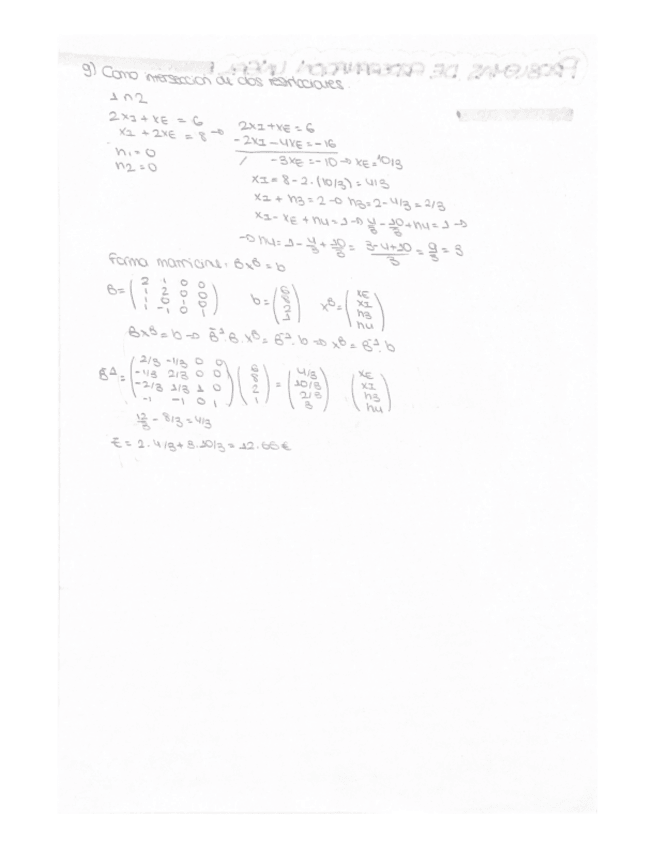 9) Como intersección de dos restricciones.
1 ∩ 2
2xI + xE = 6
xI + 2xE = 8 → 2xI + xE = 6
h1 = 0
h2 = 0
-2xI - 4xE = -16
/ -3xE = -10 → xE = 10/3
xI = 8 - 2·(10/3) = 4/3
xI + h3 = 2 → h3 = 2 - 4/3 = 2/3
xI - xE + h4 = 1 → 4/3 - 10/3 + h4 = 1 →
→ h4 = 1 - 4/3 + 10/3 = (3-4+10)/3 = 9/3 = 3
Forma matricial: B x^B = b
B = ( 2 1 0 0
1 2 0 0
1 0 1 0
1 -1 0 1 )
b = ( 6
8
2
1 )
x^B = ( xE
xI
h3
h4 )
B x^B = b → B^-1·B·x^B = B^-1·b → x^B = B^-1·b
B^-1 = ( 2/3 -1/3 0 0
-1/3 2/3 0 0
-2/3 1/3 1 0
-1 -1 0 1 )
( 6
8
2
1 ) = ( 4/3
10/3
2/3
3 )
( xE
xI
h3
h4 )
12/3 - 8/3 = 4/3
z = 2·4/3 + 3·10/3 = 12.66€